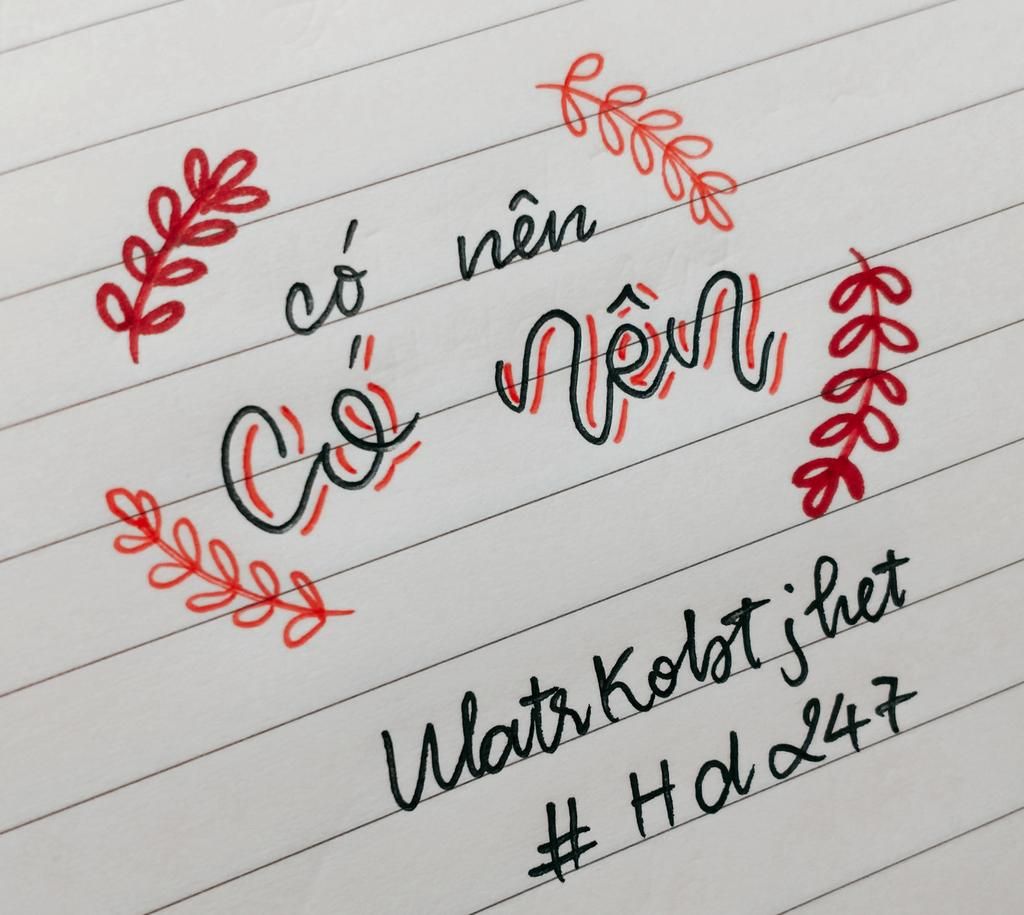 có nên
Có Nên
WatrKobtjhet
# Hd247